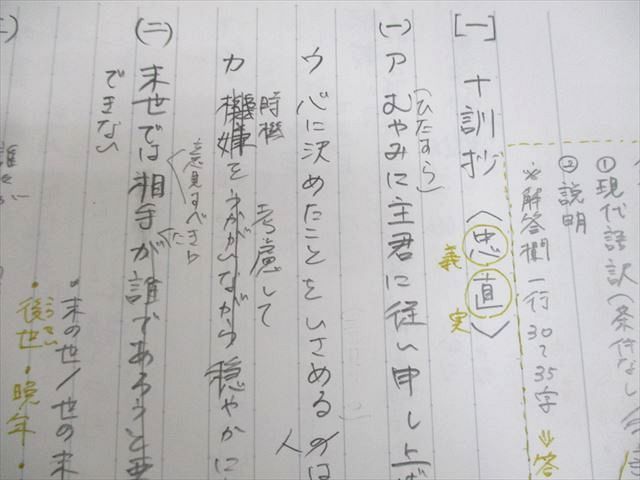 ①現代語訳(条件なし
②説明
※解答欄一行30〜35字⇒答
[一] 十訓抄〈忠直〉
義 実
(一) ア むやみに主君に従い申し上げ
(ひたすら)
ウ 心に決めたことをいさめるのは
人
時機 考慮して
カ 機嫌をうかがいながら穏やかに
意見すべき
(二) 末世では相手が誰であろうと
できない
・末の世/世の末
・後世・晩年・